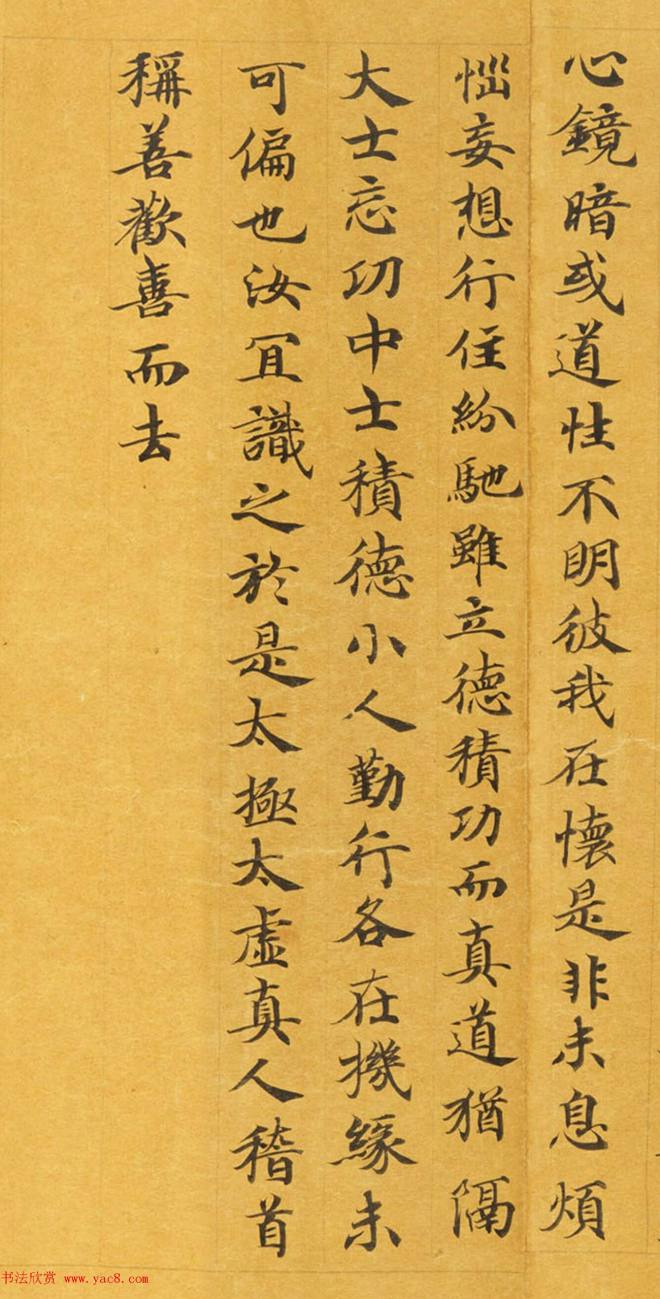 心鏡暗或道性不明彼我在懷是非未息煩
惱妄想行住紛馳雖立德積功而真道猶隔
大士忘功中士積德小人勤行各在機緣未
可偏也汝冝識之於是太極太虛真人稽首
稱善歡喜而去
书法欣赏 www.yac8.com